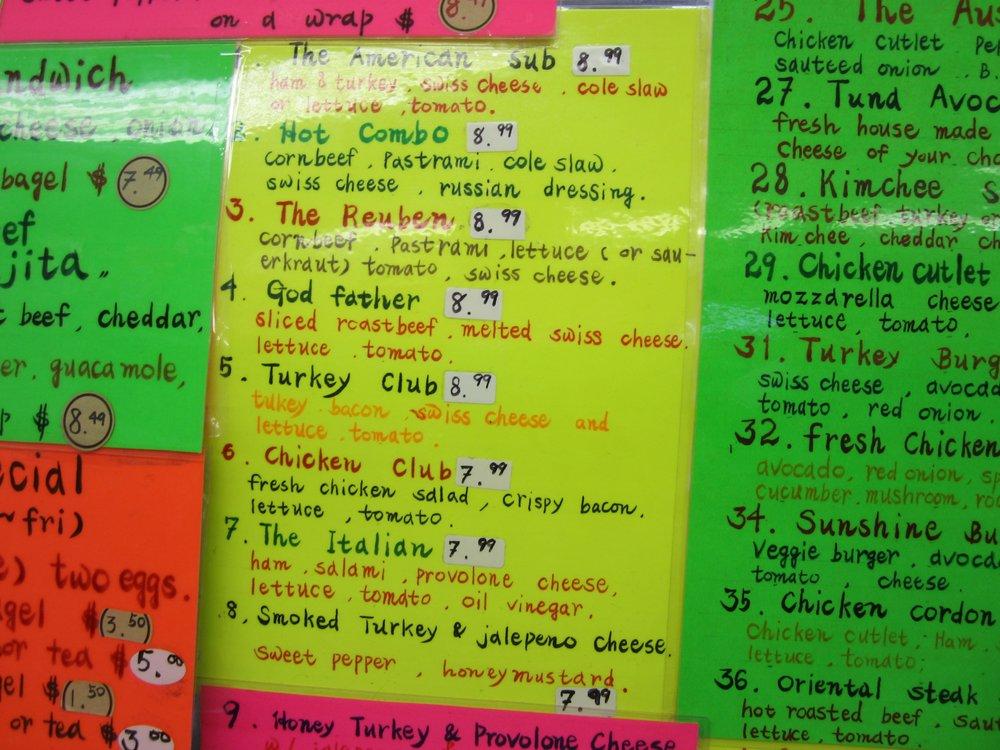 on a wrap $ 8.49
ndwich
cheese, onion,
bagel $ 7.49
ef
jita "
beef, cheddar,
er, guacamole,
p $ 8.49
ecial
~ fri)
) two eggs.
gel $ 3.50
or tea $ 5.00
gel $ 1.50
or tea $ 3.00
The American Sub 8.99
ham & turkey, swiss cheese, cole slaw
or lettuce, tomato.
2. Hot Combo 8.99
cornbeef, Pastrami, cole slaw,
swiss cheese, russian dressing.
3. The Reuben 8.99
cornbeef, Pastrami, lettuce (or sau-
erkraut) tomato, swiss cheese.
4. God father 8.99
sliced roastbeef, melted swiss cheese,
lettuce, tomato.
5. Turkey Club 8.99
tukey bacon, swiss cheese and
lettuce, tomato.
6. Chicken Club 7.99
fresh chicken salad, crispy bacon,
lettuce, tomato.
7. The Italian 7.99
ham, salami, provolone cheese,
lettuce, tomato, oil vinegar,
8, Smoked Turkey & jalepeno cheese.
sweet pepper, honeymustard.
7.99
9. Honey Turkey & Provolone Cheese
25. The Aus
Chicken cutlet Pe
sauteed onion, B.
27. Tund Avoc
fresh house made
Cheese of your cho
28. Kimchee S
(roastbeef turkey or
Kimchee, cheddar ch
29. Chicken cutlet
mozzdrella cheese
lettuce, tomato,
31. Turkey Burg
swiss cheese, avocad
tomato, red onion.
32. fresh Chicken
avocado, red onion, sp
cucumber, mushroom, ro
34. Sunshine Bu
Veggie burger, avoca
tomato, cheese
35. Chicken cordon
Chicken cutlet, Ham,
lettuce, tomato;
36. Oriental steak
hot roasted beef, saut
lettuce, tomato,